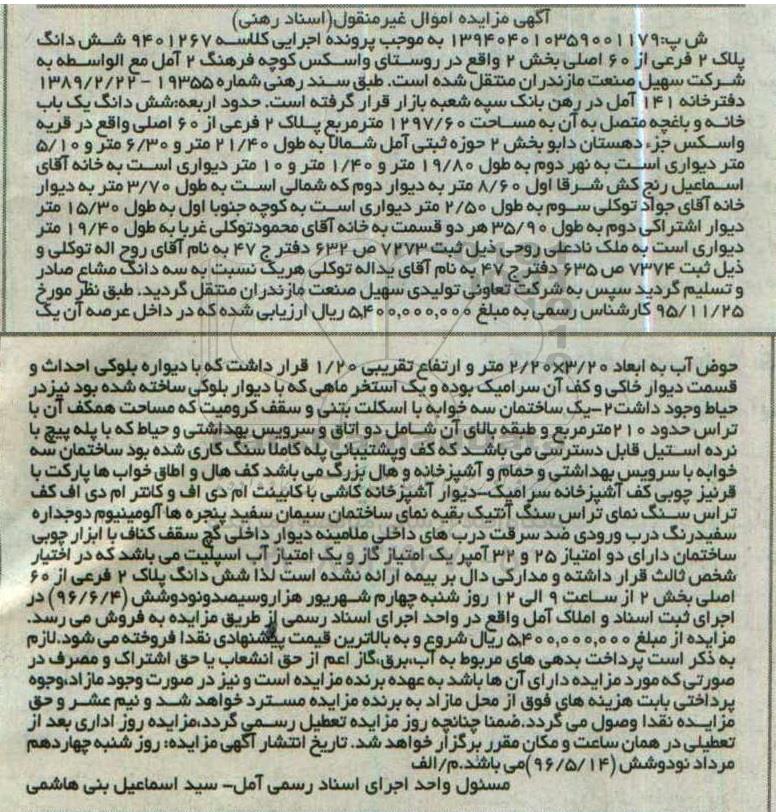 آگهی مزایده اموال غیرمنقول(اسناد رهنی)
ش پ:۱۳۹۴۰۴۰۱۰۳۵۹۰۰۱۱۷۹ به موجب پرونده اجرایی کلاسه ۹۴۰۱۲۶۷ شش دانگ
پلاک ۲ فرعی از ۶۰ اصلی بخش ۲ واقع در روستای واسکس کوچه فرهنگ ۲ آمل مع الواسطه به
شرکت سهیل صنعت مازندران منتقل شده است. طبق سند رهنی شماره ۱۹۳۵۵ – ۱۳۸۹/۲/۲۲
دفترخانه ۱۴۱ آمل در رهن بانک سپه شعبه بازار قرار گرفته است. حدود اربعه:شش دانگ یک باب
خانه و باغچه متصل به آن به مساحت ۱۲۹۷/۶۰ مترمربع پلاک ۲ فرعی از ۶۰ اصلی واقع در قریه
واسکس جزء دهستان دابو بخش ۲ حوزه ثبتی آمل شمالا به طول ۲۱/۴۰ متر و ۶/۳۰ متر و ۵/۱۰
متر دیواری است به نهر دوم به طول ۱۹/۸۰ متر و ۱/۴۰ متر و ۱۰ متر دیواری است به خانه آقای
اسماعیل رنج کش شرقا اول ۸/۶۰ متر به دیوار دوم که شمالی است به طول ۳/۷۰ متر به دیوار
خانه آقای جواد توکلی سوم به طول ۲/۵۰ متر دیواری است به کوچه جنوبا اول به طول ۱۵/۳۰ متر
دیوار اشتراکی دوم به طول ۳۵/۹۰ هر دو قسمت به خانه آقای محمودتوکلی غربا به طول ۱۹/۴۰ متر
دیواری است به ملک نادعلی روحی ذیل ثبت ۷۲۷۳ ص ۶۳۲ دفتر ج ۴۷ به نام آقای روح اله توکلی و
ذیل ثبت ۷۳۷۴ ص ۶۳۵ دفتر ج ۴۷ به نام آقای یداله توکلی هریک نسبت به سه دانگ مشاع صادر
و تسلیم گردید سپس به شرکت تعاونی تولیدی سهیل صنعت مازندران منتقل گردید. طبق نظر مورخ
۹۵/۱۱/۲۵ کارشناس رسمی به مبلغ ۵,۴۰۰,۰۰۰,۰۰۰ ریال ارزیابی شده که در داخل عرصه آن یک
حوض آب به ابعاد ۳/۲۰×۲/۲۰ متر و ارتفاع تقریبی ۱/۲۰ قرار داشت که با دیواره بلوکی احداث و
قسمت دیوار خاکی و کف آن سرامیک بوده و یک استخر ماهی که با دیوار بلوکی ساخته شده بود نیزدر
حیاط وجود داشت۲–یک ساختمان سه خوابه با اسکلت بتنی و سقف کرومیت که مساحت همکف آن با
تراس حدود ۲۱۰مترمربع و طبقه بالای آن شامل دو اتاق و سرویس بهداشتی و حیاط که با پله پیچ با
نرده استیل قابل دسترسی می باشد که کف وپشتیبانی پله کاملا سنگ کاری شده بود ساختمان سه
خوابه با سرویس بهداشتی و حمام و آشپزخانه و هال بزرگ می باشد کف هال و اطاق خواب ها پارکت با
قرنیز چوبی کف آشپزخانه سرامیک–دیوار آشپزخانه کاشی با کابینت ام دی اف و کانتر ام دی اف کف
تراس سنگ نمای تراس سنگ آنتیک بقیه نمای ساختمان سیمان سفید پنجره ها آلومینیوم دوجداره
سفیدرنگ درب ورودی ضد سرقت درب های داخلی ملامینه دیوار داخلی گچ سقف کناف با ابزار چوبی
ساختمان دارای دو امتیاز ۲۵ و ۳۲ آمپر یک امتیاز گاز و یک امتیاز آب اسپلیت می باشد که در اختیار
شخص ثالث قرار داشته و مدارکی دال بر بیمه ارائه نشده است لذا شش دانگ پلاک ۲ فرعی از ۶۰
اصلی بخش ۲ از ساعت ۹ الی ۱۲ روز شنبه چهارم شهریور هزاروسیصدونودوشش (۹۶/۶/۴) در
اجرای ثبت اسناد و املاک آمل واقع در واحد اجرای اسناد رسمی از طریق مزایده به فروش می رسد.
مزایده از مبلغ ۵,۴۰۰,۰۰۰,۰۰۰ ریال شروع و به بالاترین قیمت پیشنهادی نقدا فروخته می شود.لازم
به ذکر است پرداخت بدهی های مربوط به آب،برق،گاز اعم از حق انشعاب یا حق اشتراک و مصرف در
صورتی که مورد مزایده دارای آن ها باشد به عهده برنده مزایده است و نیز در صورت وجود مازاد،وجوه
پرداختی بابت هزینه های فوق از محل مازاد به برنده مزایده مسترد خواهد شد و نیم عشر و حق
مزایده نقدا وصول می گردد.ضمنا چنانچه روز مزایده تعطیل رسمی گردد،مزایده روز اداری بعد از
تعطیلی در همان ساعت و مکان مقرر برگزار خواهد شد. تاریخ انتشار آگهی مزایده: روز شنبه چهاردهم
مرداد نودوشش (۹۶/۵/۱۴)می باشد.م/الف
مسئول واحد اجرای اسناد رسمی آمل– سید اسماعیل بنی هاشمی